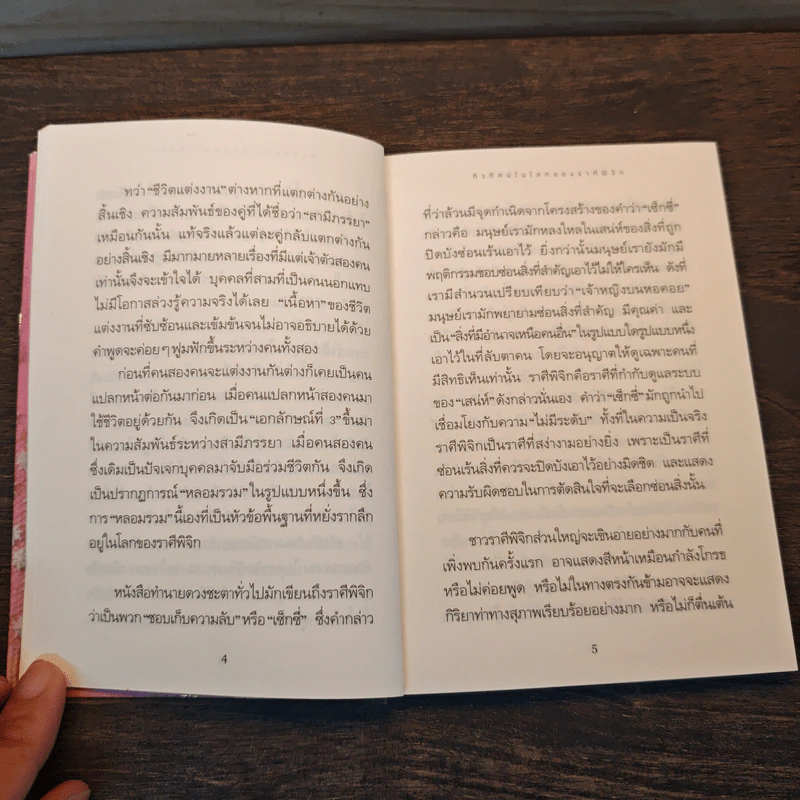 ทว่า “ชีวิตแต่งงาน” ต่างหากที่แตกต่างกันอย่าง
สิ้นเชิง ความสัมพันธ์ของคู่ที่ได้ชื่อว่า “สามีภรรยา”
เหมือนกันนั้น แท้จริงแล้วแต่ละคู่กลับแตกต่างกัน
อย่างสิ้นเชิง มีมากมายหลายเรื่องที่มีแต่เจ้าตัวสองคน
เท่านั้นจึงจะเข้าใจได้ บุคคลที่สามที่เป็นคนนอกแทบ
ไม่มีโอกาสล่วงรู้ความจริงได้เลย “เนื้อหา” ของชีวิต
แต่งงานที่ซับซ้อนและเข้มข้นจนไม่อาจอธิบายได้ด้วย
คำพูดจะค่อยๆ ฟูมฟักขึ้นระหว่างคนทั้งสอง
ก่อนที่คนสองคนจะแต่งงานกันต่างก็เคยเป็นคน
แปลกหน้าต่อกันมาก่อน เมื่อคนแปลกหน้าสองคนมา
ใช้ชีวิตอยู่ด้วยกัน จึงเกิดเป็น “เอกลักษณ์ที่ 3” ขึ้นมา
ในความสัมพันธ์ระหว่างสามีภรรยา เมื่อคนสองคน
ซึ่งเดิมเป็นปัจเจกบุคคลมาจับมือร่วมชีวิตกัน จึงเกิด
เป็นปรากฏการณ์ “หลอมรวม” ในรูปแบบหนึ่งขึ้น ซึ่ง
การ “หลอมรวม” นี้เองที่เป็นหัวข้อพื้นฐานที่หยั่งรากลึก
อยู่ในโลกของราศีพิจิก
หนังสือทำนายดวงชะตาทั่วไปมักเขียนถึงราศีพิจิก
ว่าเป็นพวก “ชอบเก็บความลับ” หรือ “เซ็กซี่” ซึ่งคำกล่าว
4
ทิวทัศน์ในโลกของราศีพิจิก
ที่ว่าล้วนมีจุดกำเนิดจากโครงสร้างของคำว่า “เซ็กซี่”
กล่าวคือ มนุษย์เรามักหลงใหลในเสน่ห์ของสิ่งที่ถูก
ปิดบังซ่อนเร้นเอาไว้ ยิ่งกว่านั้นมนุษย์เรายังมักมี
พฤติกรรมชอบซ่อนสิ่งที่สำคัญเอาไว้ไม่ให้ใครเห็น ดังที่
เรามีสำนวนเปรียบเทียบว่า “เจ้าหญิงบนหอคอย”
มนุษย์เรามักพยายามซ่อนสิ่งที่สำคัญ มีคุณค่า และ
เป็น “สิ่งที่มีอำนาจเหนือคนอื่น” ในรูปแบบใดรูปแบบหนึ่ง
เอาไว้ในที่ลับตาคน โดยจะอนุญาตให้ดูเฉพาะคนที่
มีสิทธิเห็นเท่านั้น ราศีพิจิกคือราศีที่กำกับดูแลระบบ
ของ “เสน่ห์” ดังกล่าวนั่นเอง คำว่า “เซ็กซี่” มักถูกนำไป
เชื่อมโยงกับความ “ไม่มีระดับ” ทั้งที่ในความเป็นจริง
ราศีพิจิกเป็นราศีที่สง่างามอย่างยิ่ง เพราะเป็นราศีที่
ซ่อนเร้นสิ่งที่ควรจะปิดบังเอาไว้อย่างมิดชิด และแสดง
ความรับผิดชอบในการตัดสินใจที่จะเลือกซ่อนสิ่งนั้น
ชาวราศีพิจิกส่วนใหญ่จะเขินอายอย่างมากกับคนที่
เพิ่งพบกันครั้งแรก อาจแสดงสีหน้าเหมือนกำลังโกรธ
หรือไม่ค่อยพูด หรือไม่ในทางตรงกันข้ามอาจจะแสดง
กิริยาท่าทางสุภาพเรียบร้อยอย่างมาก หรือไม่ก็ตื่นเต้น
5